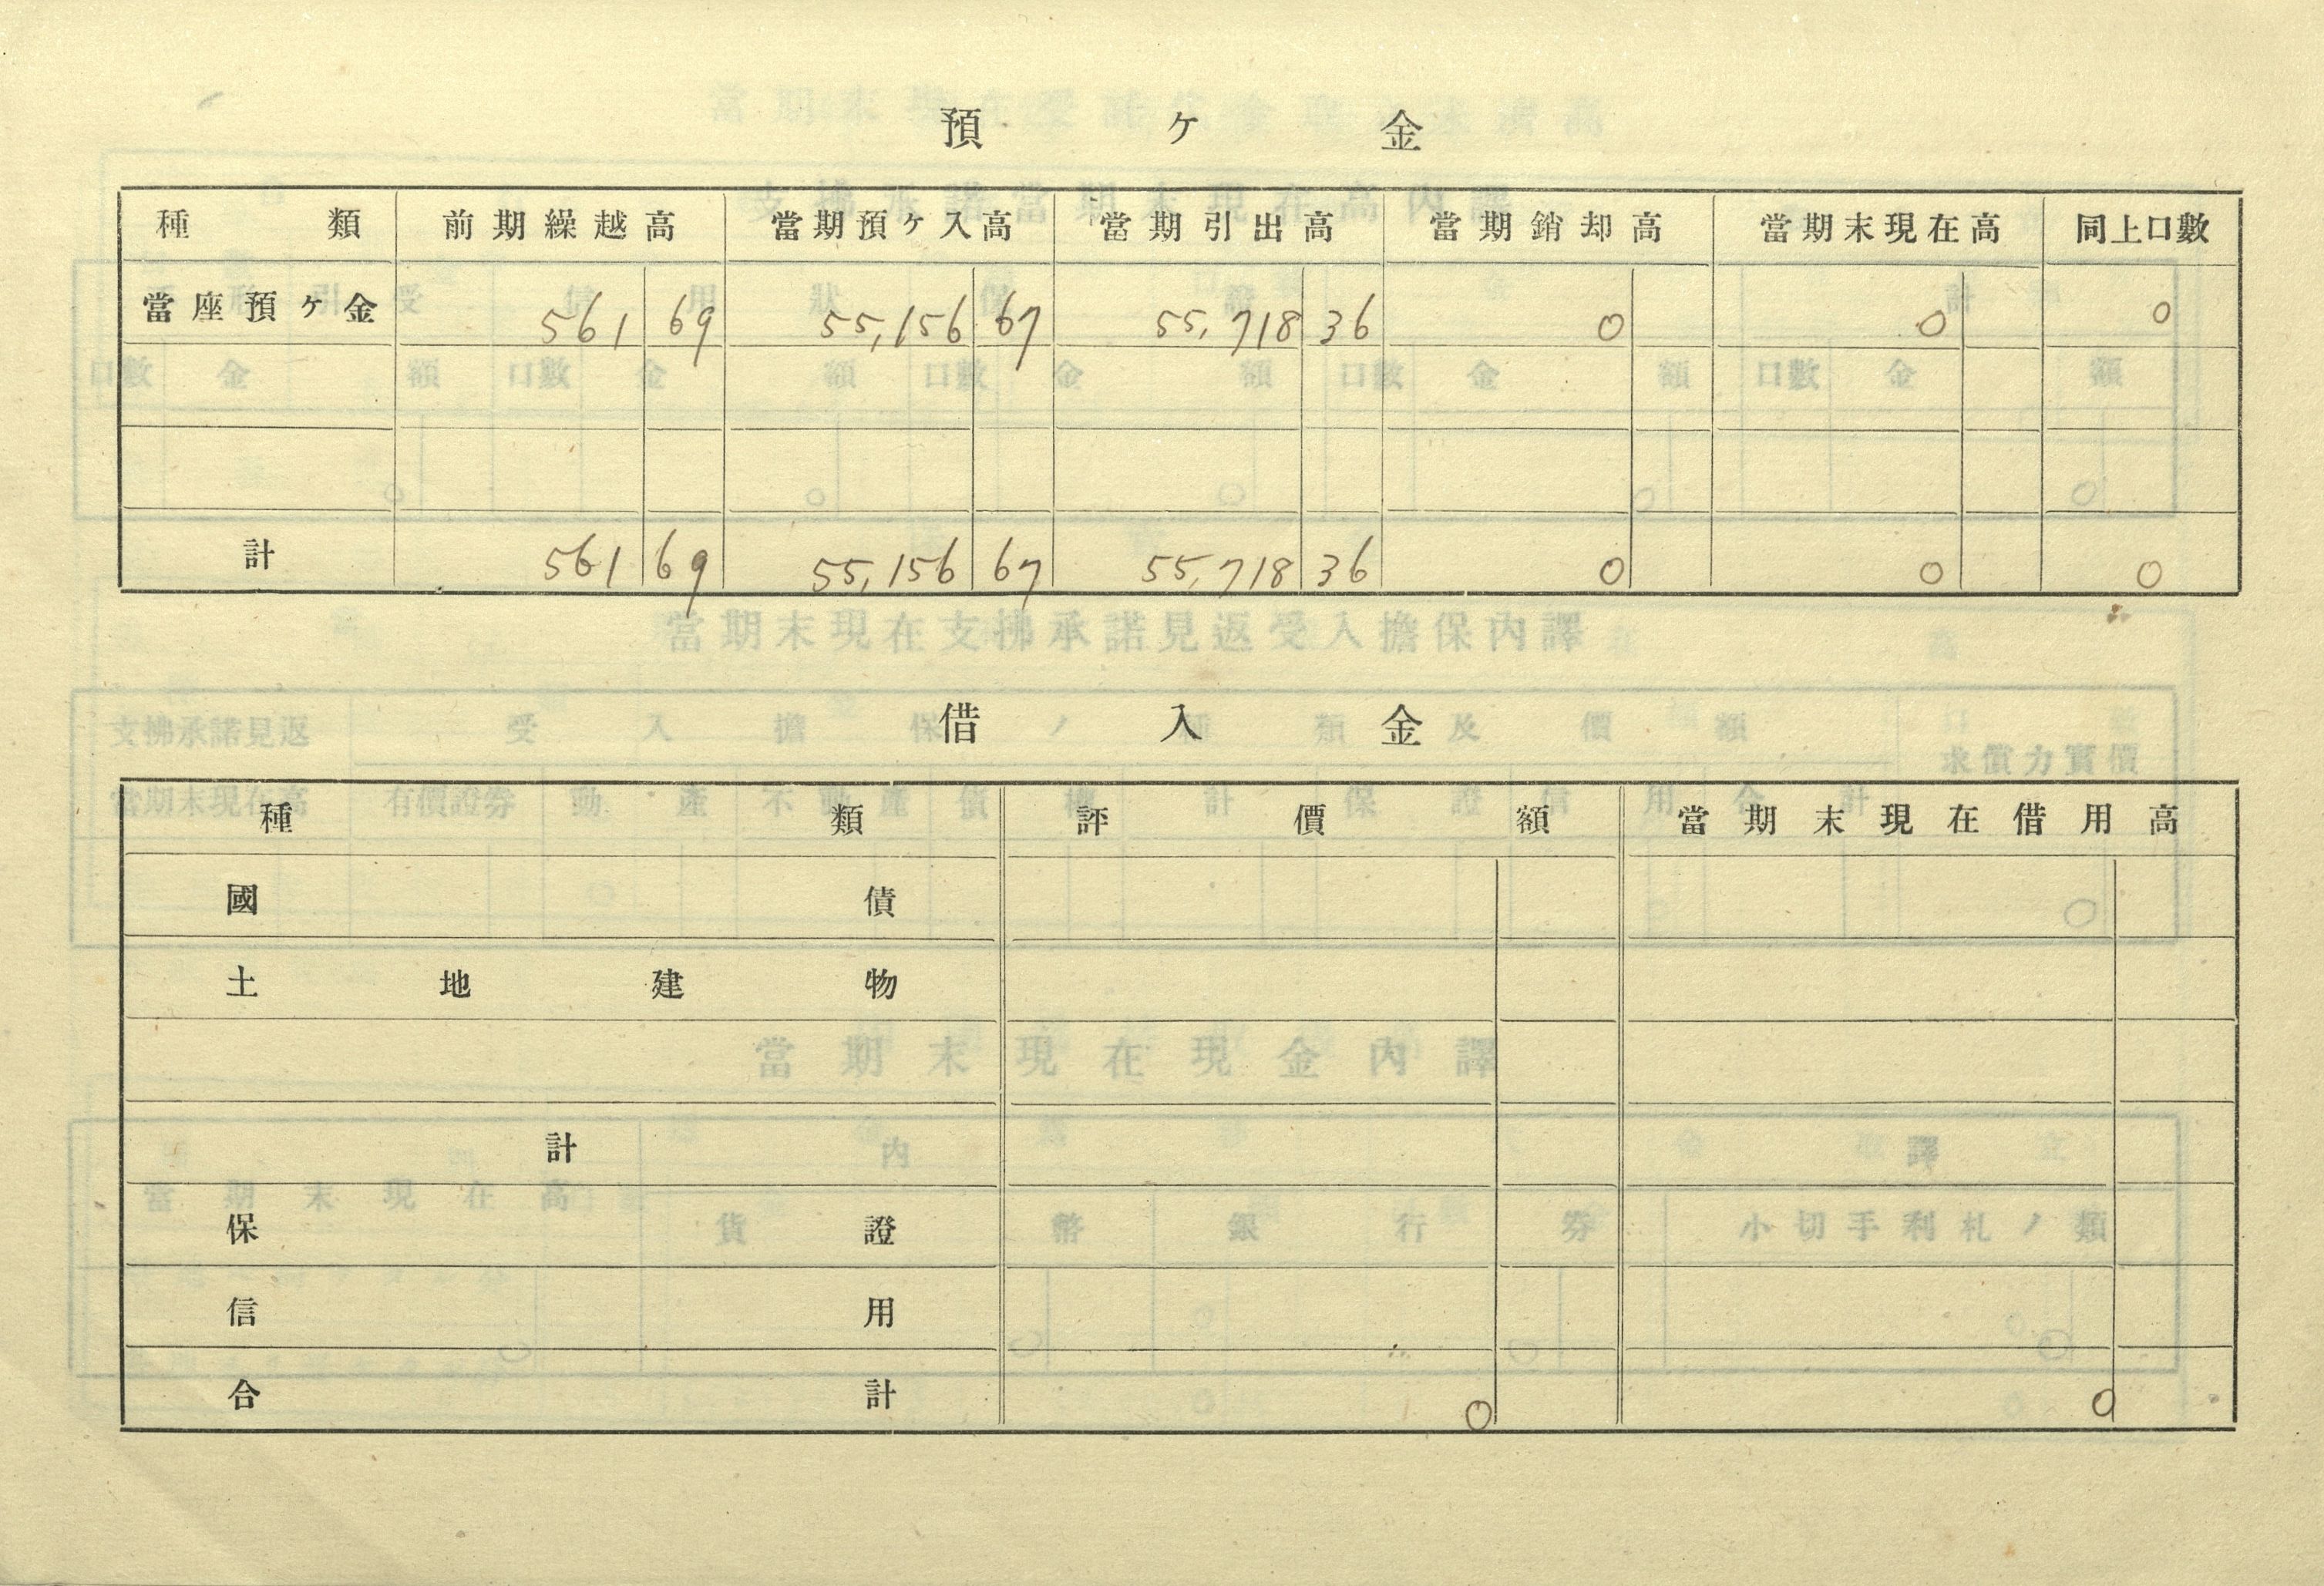 預ケ金
種類 前期繰越高 當期預ケ入高 當期引出高 當期銷却高 當期末現在高 同上口數
當座預ケ金 561 69 55,156 67 55,718 36 0 0 0
計 561 69 55,156 67 55,718 36 0 0 0
借入金
種類 評價額 當期末現在借用高
國債
土地建物
計
保證
信用
合計 0 0